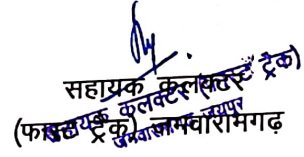 सहायक कलक्टर
(फास्ट ट्रैक) जमवारामगढ़
सहायक कलक्टर (फास्ट ट्रैक)
जमवारामगढ़ जयपुर